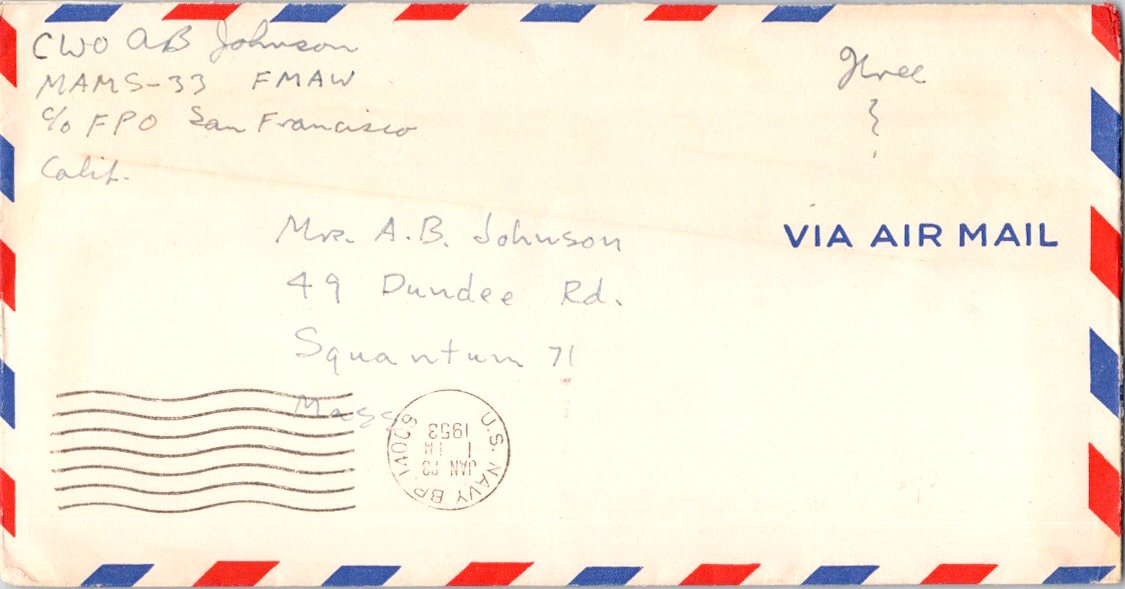 CWO AB Johnson
MAMS-33 FMAW
c/o FPO San Francisco
Calif.
Free
VIA AIR MAIL
Mrs. A.B. Johnson
49 Dundee Rd.
Squantum 71
Mass
U.S. NAVY BR.
JAN
1
1953